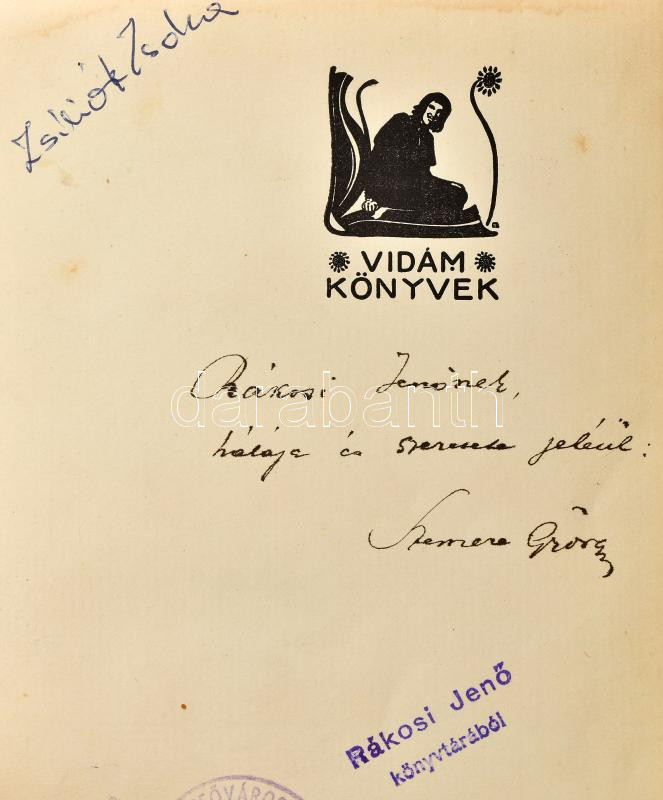 Zsiliók Zsóka
VIDÁM
KÖNYVEK
Rákosi Jenőnek,
hálája és szeretete jeléül:
Szemere György
darabanth
Rákosi Jenő
könyvtárából
FŐVÁROS